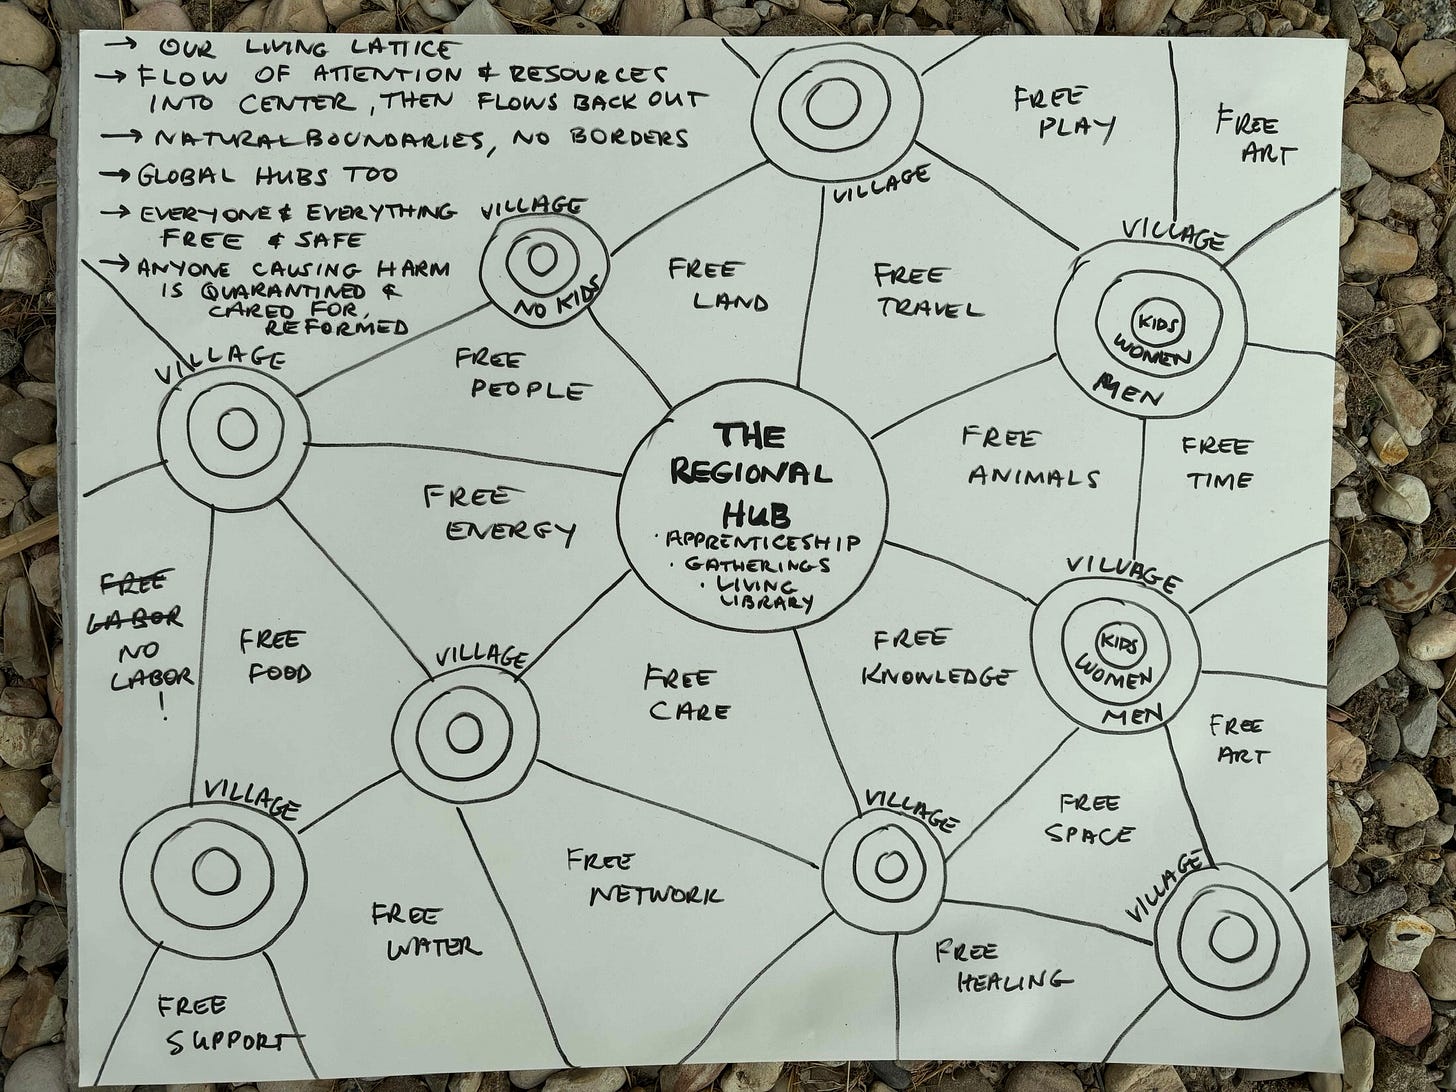 → OUR LIVING LATTICE
→ FLOW OF ATTENTION & RESOURCES
INTO CENTER, THEN FLOWS BACK OUT
→ NATURAL BOUNDARIES, NO BORDERS
→ GLOBAL HUBS TOO
→ EVERYONE & EVERYTHING
FREE & SAFE
→ ANYONE CAUSING HARM
IS QUARANTINED &
CARED FOR,
REFORMED
VILLAGE
FREE
PLAY
FREE
ART
VILLAGE
NO KIDS
VILLAGE
KIDS
WOMEN
MEN
FREE
LAND
FREE
TRAVEL
VILLAGE
FREE
PEOPLE
THE
REGIONAL
HUB
· APPRENTICESHIP
· GATHERINGS
· LIVING
LIBRARY
FREE
ANIMALS
FREE
TIME
FREE
ENERGY
FREE
LABOR
NO
LABOR
!
FREE
FOOD
VILLAGE
FREE
CARE
FREE
KNOWLEDGE
VILLAGE
KIDS
WOMEN
MEN
FREE
ART
VILLAGE
VILLAGE
FREE
SPACE
VILLAGE
FREE
WATER
FREE
NETWORK
FREE
HEALING
FREE
SUPPORT